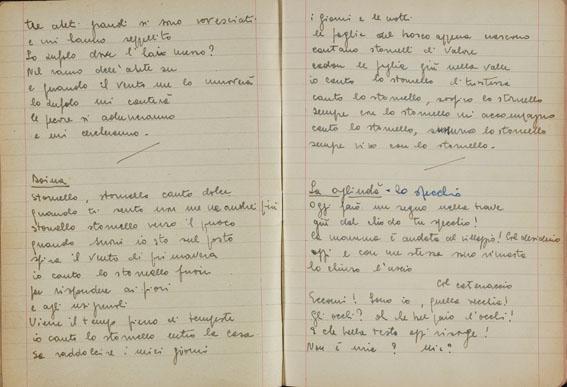 tre abeti grandi si sono rovesciati
e mi hanno seppellito
Lo zufolo dove l'hai messo?
Nel ramo dell'abete su
e quando il vento me lo muoverà
lo zufolo mi canterà
le pecore si aduneranno
e mi cercheranno.
Doina
Stornello, stornello canto dolce
quando ti sento non me ne andrei più
stornello stornello verso il fuoco
quando suoni io sto sul posto
spira il vento di primavera
io canto lo stornello fuori
per rispondere ai fiori
e agli usignuoli
Viene il tempo pieno di tempeste
io canto lo stornello entro la casa
Se raddolcire i miei giorni
i giorni e le notti
le foglie del bosco appena nascono
cantano stornelli di valore
cadon le foglie giù nella valle
io canto lo stornello di tristezza
canto lo stornello, sospiro lo stornello
sempre con lo stornello mi accompagno
canto lo stornello, lo stornello
sempre vivo con lo stornello.
La oglindă - lo specchio
Oggi farò un segno nella trave
giù dal chiodo tu specchio!
La mamma è andata al villaggio! Col desiderio
oggi e con me stessa sono rimasta
ho chiuso l'uscio
Col catenaccio
Eccomi! Sono io, quella vecchia!
Gli occhi? oh che bel paio d'occhi!
E che bella testa oggi risorge!
Non è mia? Mia?